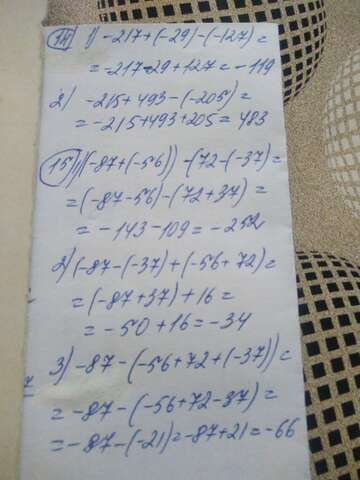 14 1) -217+(-29)-(-127)=
=-217-29+127=-119
2) -215+493-(-205)=
=-215+493+205=483
15 1) (-87+(-56))-(72-(-37)=
=(-87-56)-(72+37)=
=-143-109=-252
2) (-87-(-37)+(-56+72)=
=(-87+37)+16=
=-50+16=-34
3) -87-(-56+72+(-37))=
=-87-(-56+72-37)=
=-87-(-21)=-87+21=-66